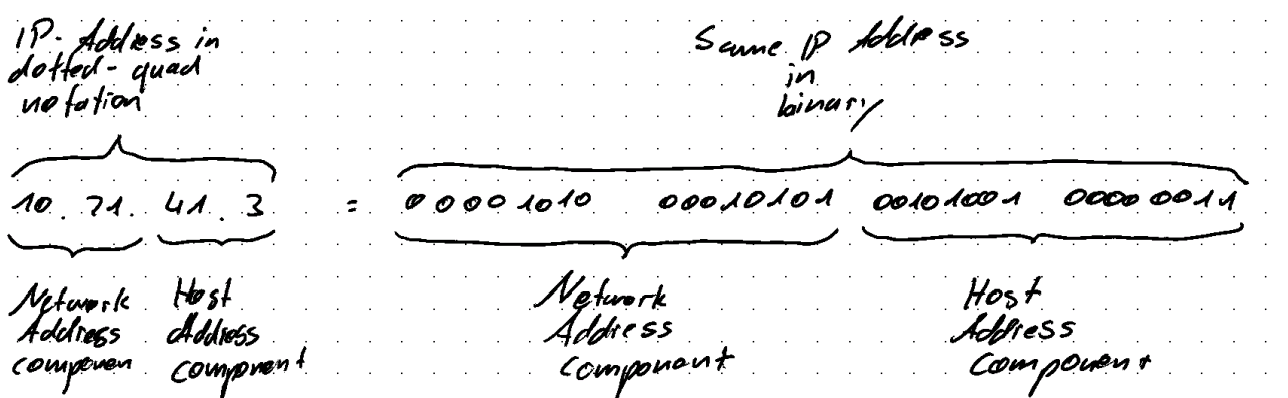 IP-Address in
dotted-quad
notation
Same IP Address
in
binary
10.21.41.3 = 00001010 00010101 00101001 00000011
Network
Address
componen
Host
Address
component
Network
Address
component
Host
Address
Component